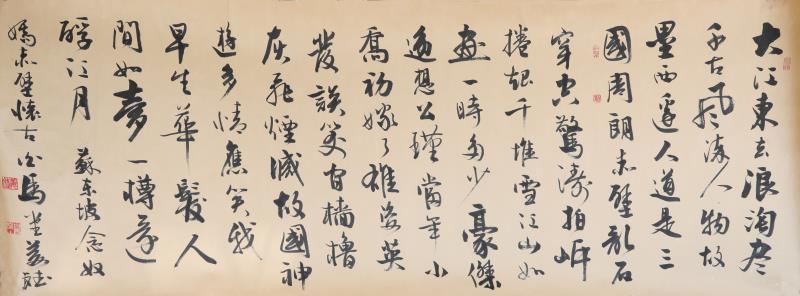 大江東去浪淘盡
千古風流人物故
壘西邊人道是三
國周郎赤壁亂石
穿空驚濤拍岸
捲起千堆雪江山如
畫一時多少豪傑
遙想公瑾當年小
喬初嫁了雄姿英
發談笑間檣櫓
灰飛煙滅故國神
遊多情應笑我
早生華髮人
間如夢一樽還
酹江月
蘇東坡念奴
嬌赤壁懷古